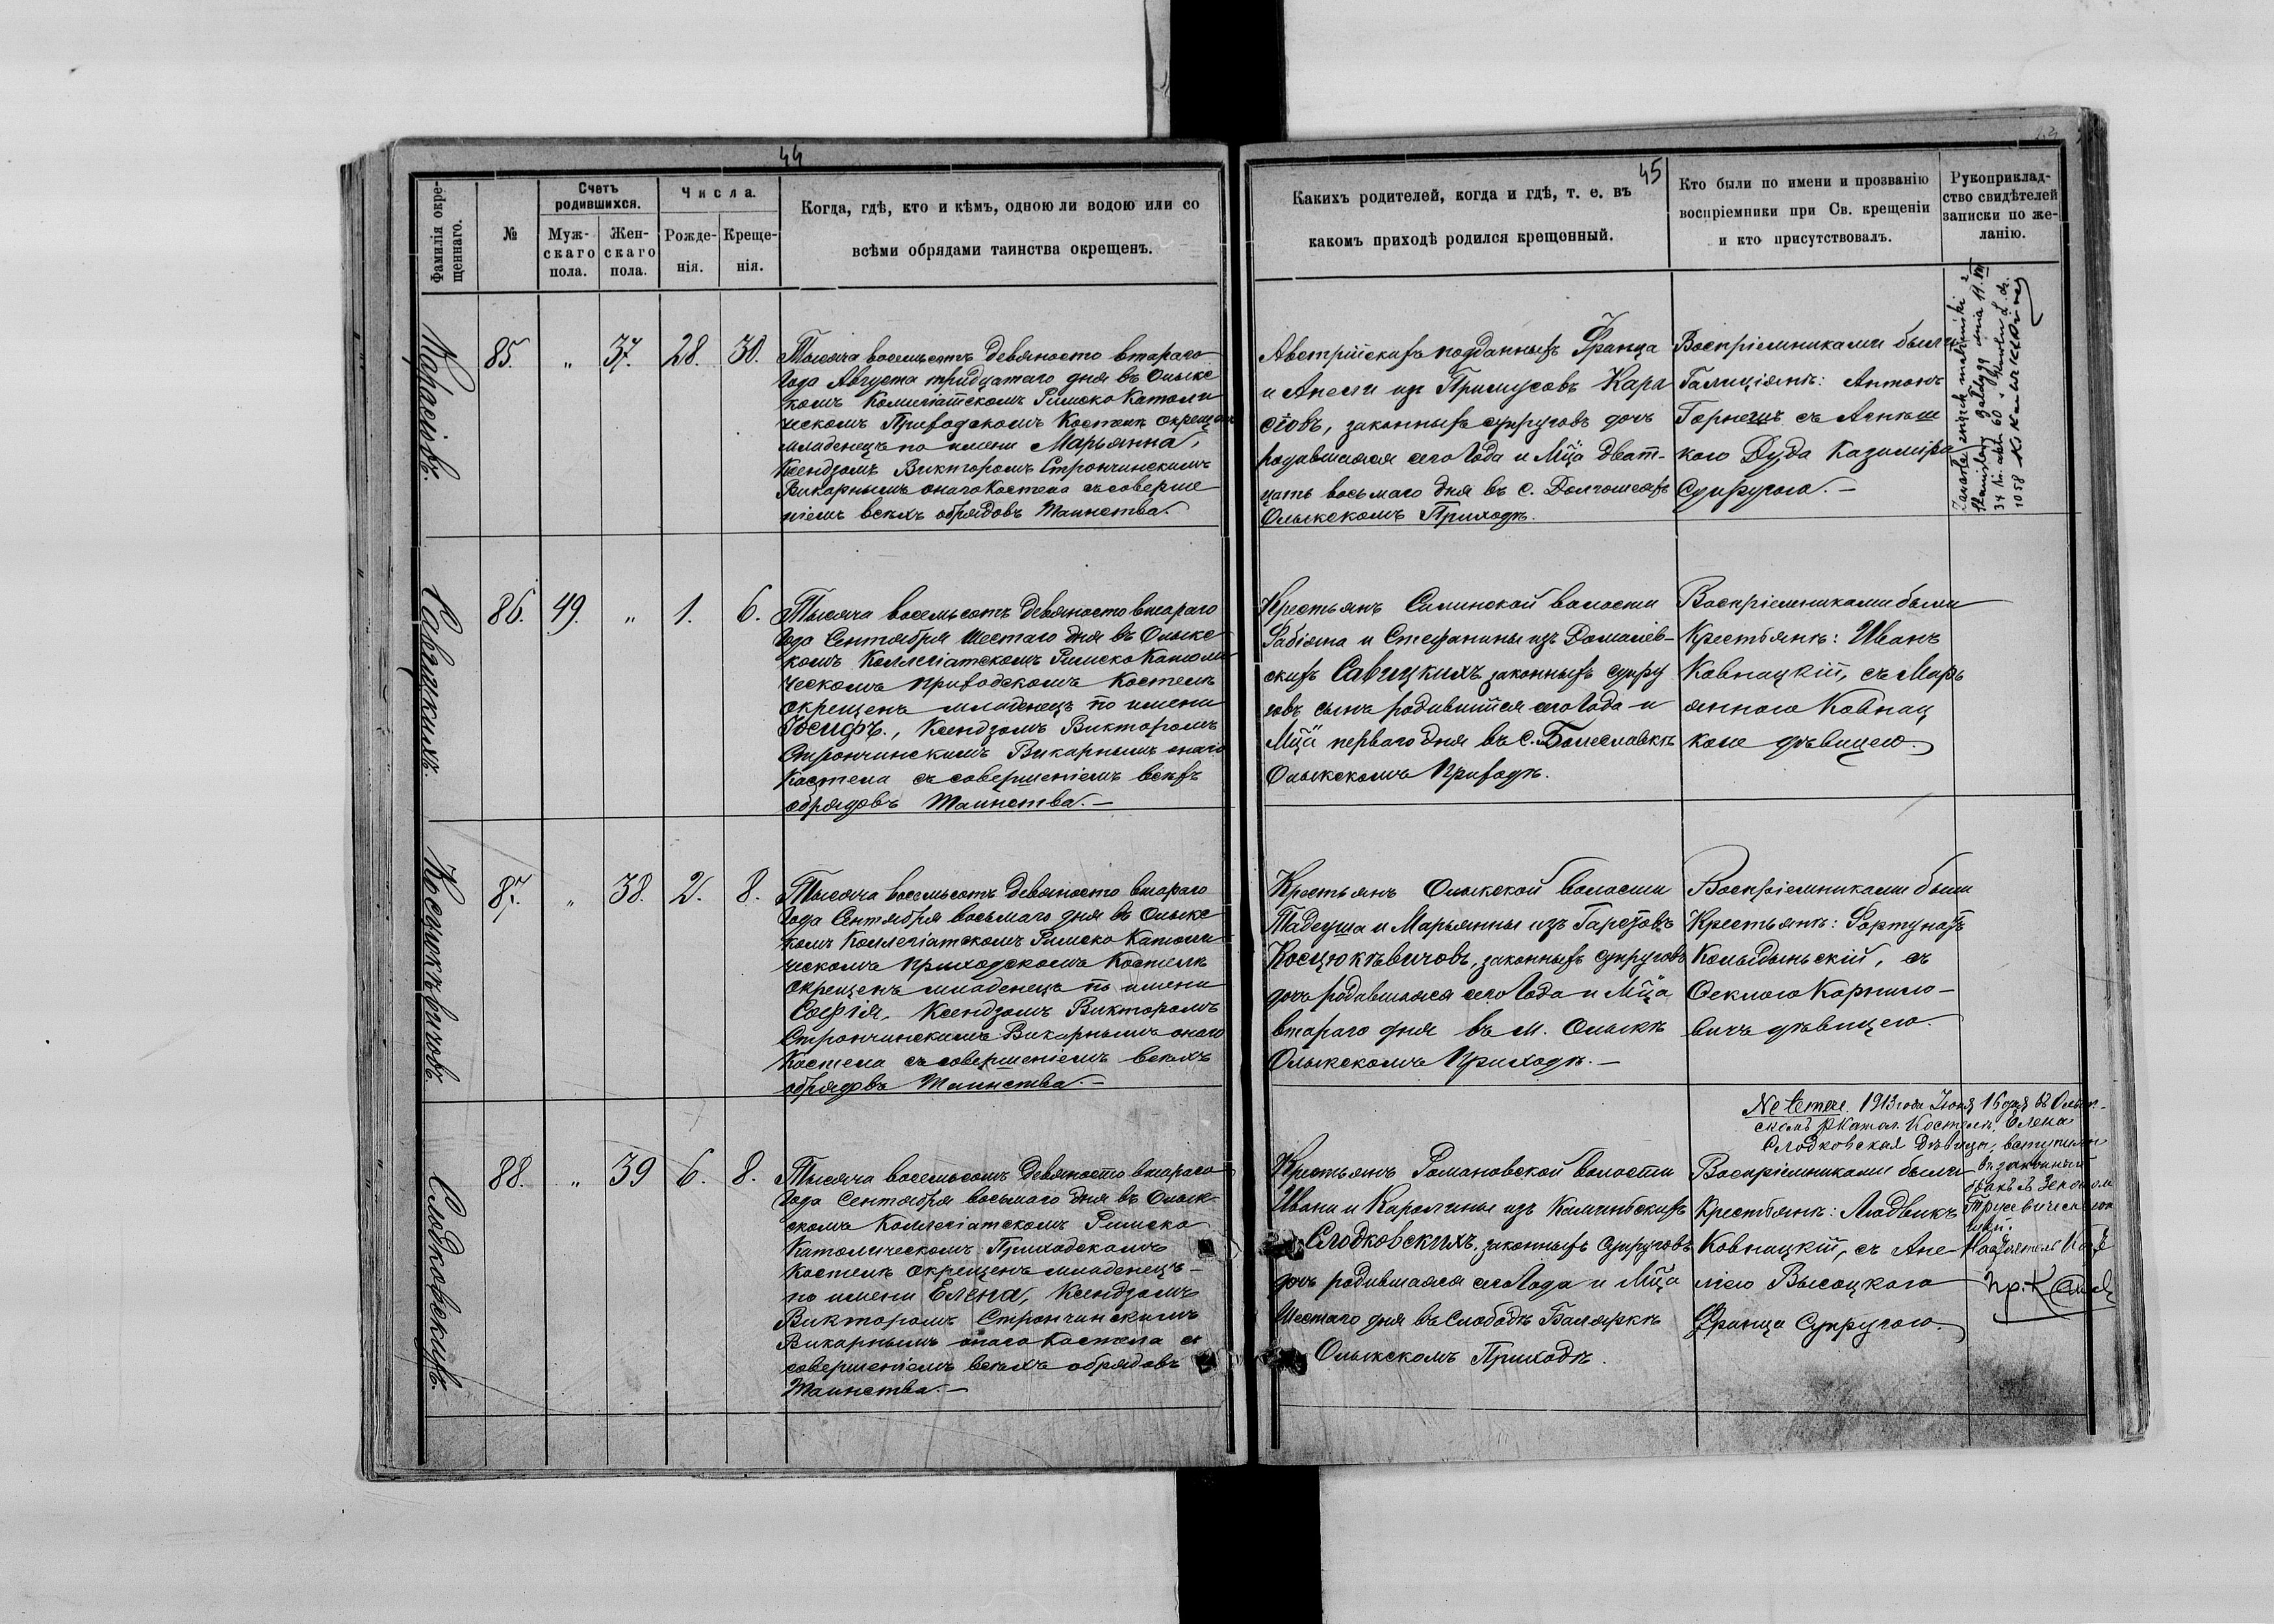 44
Фамилія окре-
щеннаго.
№
Счетъ
родившихся.
Муж-
скаго
пола.
Жен-
скаго
пола.
Числа.
Рожде-
нія.
Креще-
нія.
Когда, гдѣ, кто и кѣмъ, одною ли водою или со
всѣми обрядами таинства окрещенъ.
85. " 37. 28. 30.
Тысяча восемьсотъ девяносто втараго
года Августа тридцатаго дня въ Олыкс
комъ Колигіатскомъ Римско Католи
ческомъ Приходскомъ Костелѣ окрещенъ
младенецъ по имени Марьянна,
Ксендзомъ Викторомъ Стрончинскимъ
Викарнымъ онаго Костела съ соверше
ніемъ всѣхъ обрядовъ Таинства.
Савицкихъ.
86. 49. " 1. 6.
Тысяча восемьсотъ девяносто втараго
года Сентября шестаго дня въ Олыкс
комъ Коллегіатскомъ Римско Католи
ческомъ приходскомъ Костелѣ
окрещенъ младенецъ по имени
Іосифъ., Ксендзомъ Викторомъ
Стрончинскимъ Викарнымъ онаго
Костела съ совершеніемъ всѣхъ
обрядовъ Таинства.—
Косцюкѣвичовъ.
87. " 38. 2. 8.
Тысяча восемьсотъ девяносто втараго
года Сентября восьмаго дня въ Олыкс
комъ Коллегіатскомъ Римско Католи
ческомъ приходскомъ Костелѣ
окрещенъ младенецъ по имени
Софія, Ксендзомъ Викторомъ
Стрончинскимъ Викарнымъ онаго
Костела съ совершеніемъ всѣхъ
обрядовъ Таинства.—
Слодковскихъ.
88. " 39 6. 8.
Тысяча восемьсотъ девяносто втараго
года Сентября восьмаго дня въ Олык-
скомъ Коллегіатскомъ Римско
Католическомъ Приходскомъ
Костелѣ окрещенъ младенецъ—
по имени Елена, Ксендзомъ
Викторомъ Стрончинскимъ
Викарнымъ онаго Костела съ
совершеніемъ всѣхъ обрядовъ
Таинства.—
45
Какихъ родителей, когда и гдѣ, т. е. въ
какомъ приходѣ родился крещенный.
Кто были по имени и прозванію
воспріемники при Св. крещеніи
и кто присутствовалъ.
Рукоприклад-
ство свидѣтелей
записки по же-
ланію.
Австрійскихъ подданныхъ Франца
и Анели изъ Примусовъ
законныхъ супруговъ дочь
родившаяся сего года и Мц̃а дват-
цать восьмаго дня въ с.
Олыкскомъ Приходѣ.
Воспріемниками были
Галиціянѣ: Антонъ
съ Агнѣш
кою Дуда Казиміра
Супругою.—
Крестьянъ Силинской волости
Фабіяна и Стефанины изъ Домалев-
скихъ Савицкихъ законныхъ супру
говъ сынъ родившійся сего года и
Мц̃а перваго дня въ с. Болеславкѣ
Олыкскомъ Приходѣ.
Воспріемниками были
Крестьянѣ: Иванъ
Ковнацкій, съ Марь
янною Ковнац
кою дѣвицею.
Крестьянъ Олыкской волости
Тадеуша и Марьянны изъ
Косцюкѣвичовъ, законныхъ супруговъ
дочь родившаяся сего года и Мц̃а
втараго дня въ м. Олыкѣ
Олыкскомъ Приходѣ.—
Воспріемниками были
Крестьянѣ: Фортунатъ
съ
Феклою Корнило-
вичъ дѣвицею.
1913 года Іюня 16 дня въ Олык-
скомъ Р Катол. Костелѣ, Елена
Слодковская дѣвица, вступила
въ законный
бракъ съ
Крестьянъ Романовской волости
Ивана и Каролины изъ Калиньскихъ
Слодковскихъ, законныхъ супруговъ
дочь родившаяся сего года и Мц̃а
шестаго дня въ Слободѣ Балярка
Олыкскомъ Приходѣ.
Воспріемниками были
Крестьянѣ: Людвикъ
Ковнацкій, съ Ане
лею Высоцкаго
Франца Супругою.